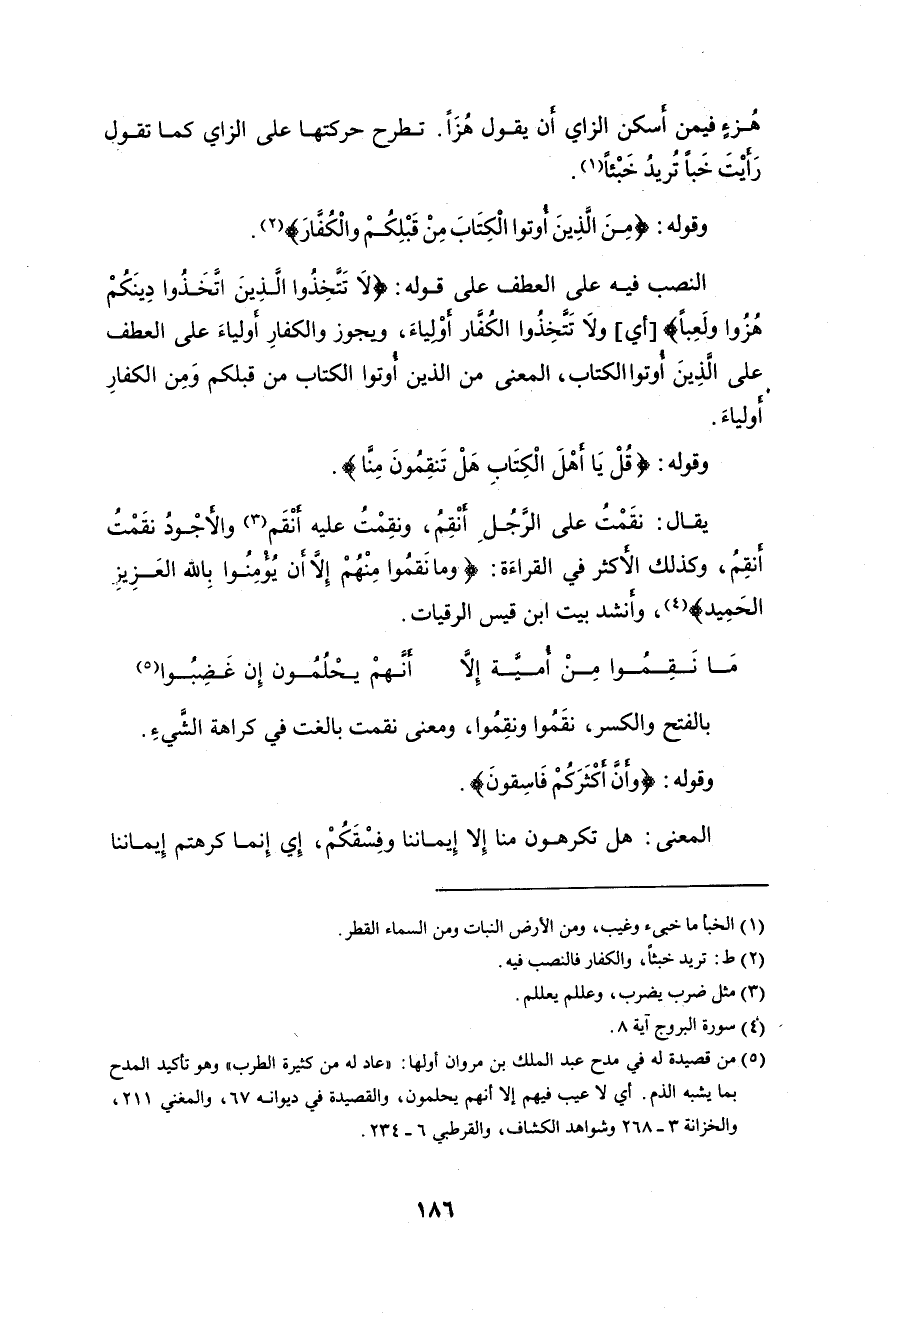 هُـزءٍ فيمن أَسكن الزاي أَن يقول هُزَاً. تـطرح حركتهـا على الزاي كمـا تقـول
رَأَيْتَ خَباً تُريدُ خَبْئاً(١).
وقوله: ﴿مِـنَ الَّذِينَ أُوتوا الْكِتَابَ مِنْ قَبْلِكُـمْ والْكُفَّارَ﴾(٢).
النصب فيـه على العطف على قـوله: ﴿لاَ تَتَّخِذُوا الَّـذِينَ اتَّخَـذُوا دِينَكُمْ
هُزُوا ولَعِباً﴾ [أي] ولا تَتَّخِذُوا الكُفَّار أَوْلِياءَ، ويجوز والكفارِ أَولياءَ على العطف
على الَّذِينَ أُوتوا الكتاب، المعنى من الذين أُوتوا الكتاب من قبلكم وَمِن الكفارِ
أَولياءَ.
وقوله: ﴿قُلْ يَا أَهْلَ الْكِتَابِ هَلْ تَنقِمُونَ مِنَّا﴾.
يقـال: نقَمْتُ على الرَّجُـلِ أَنْقِمُ، ونقِمْتُ عليه أَنْقَم(٣) والأَجْـودُ نقَمْتُ
أَنقِمُ، وكذلك الأَكثر في القراءَة: ﴿وما نَقَمُوا مِنْهُمْ إِلاَّ أَن يُؤْمِنُـوا بِالله العَـزِيزِ
الحَمِيد﴾(٤)، وأَنشد بيت ابن قيس الرقيات.
مَـا نَـقِـمُـوا مِـنْ أُميَّـة إِلاَّ أَنَّـهمْ يحْلُمُـون إِن غَـضِبُـوا(٥)
بالفتح والكسر، نقَمُوا ونقِمُوا، ومعنى نقمت بالغت في كراهة الشَّيءِ.
وقوله: ﴿وأَنَّ أَكْثَرَكُمْ فَاسِقونَ﴾.
المعنى: هل تكرهـون منا إِلا إِيمـاننا وفِسْقَكُمْ، إِي إِنمـا كرهتم إِيمـاننا
(١) الخبأ ما خبىء وغيب، ومن الأرض النبات ومن السماء القطر.
(٢) ط: تريد خبئاً، والكفار فالنصب فيه.
(٣) مثل ضرب يضرب، وعلم يعلم.
(٤) سورة البروج آية ٨.
(٥) من قصيدة له في مدح عبد الملك بن مروان أولها: «عاد له من كثيرة الطرب» وهو تأكيد المدح
بما يشبه الذم. أي لا عيب فيهم إلا أنهم يحلمون، والقصيدة في ديوانـه ٦٧، والمغني ٢١١،
والخزانة ٣ ـ ٢٦٨ وشواهد الكشاف، والقرطبي ٦ ـ ٢٣٤.
١٨٦